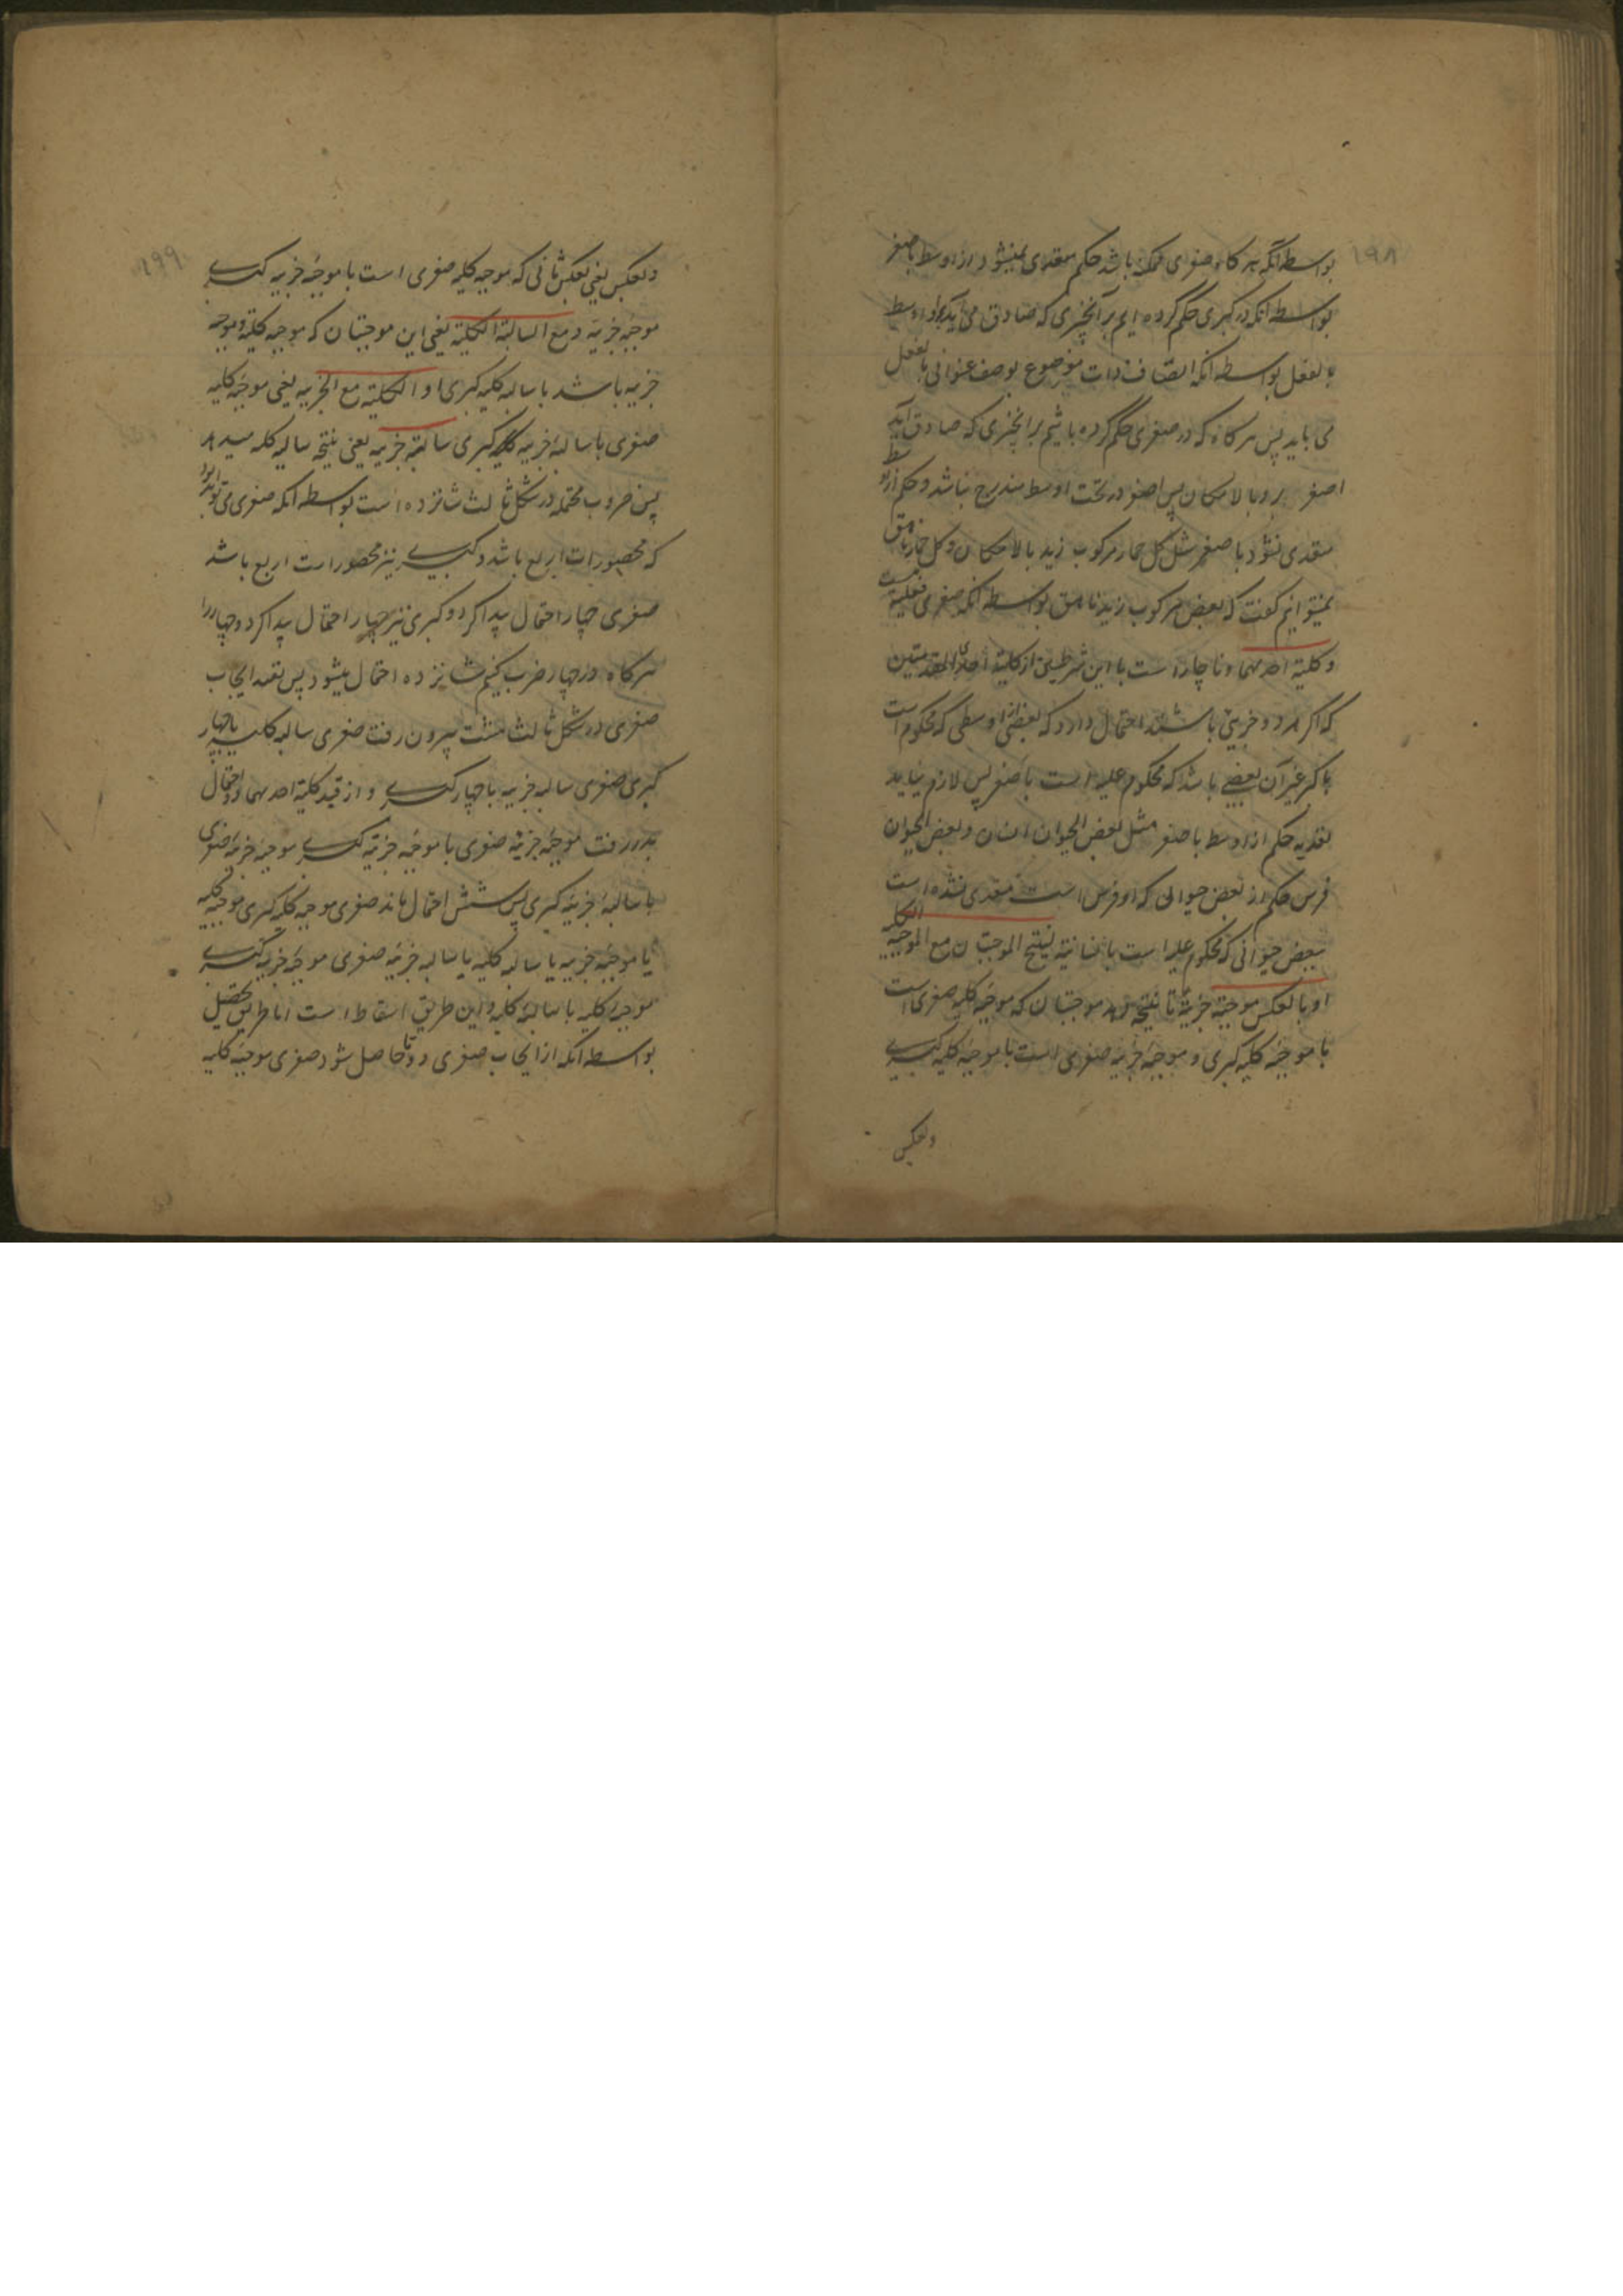 ۱۹۸
بواسطه آنکه هر کاه صغری ممکنه باشد حکم متعدی نمیشود از اوسط باصغر
بواسطه آنکه در کبری حکم کرده ایم بر آنچیزی که صادق می آید براو اوسط
بالفعل بواسطه آنکه اتصاف ذات موضوع بوصف عنوانی بالفعل
می باید پس هر کاه که در صغری حکم کرده باشیم بر آنچیزی که صادق آید
اصغر برو بالامکان پس اصغر در تحت اوسط مندرج نباشد و حکم از اوسط
متعدی نشود باصغر مثل کل حمار مرکوب زید بالامکان و کل حمار ناهق
نمیتوانیم کفت که بعض مرکوب زید ناهق بواسطه آنکه صغری فعلیه نیست
و کلیة احدیهما و ناچار است با این شرطین از کلیة احدی المقدمتین
که اکر هر دو جزئی باشند احتمال دارد که بعضی از اوسطی که محکوم است
باکبر غیر آن بعضی باشد که محکوم علیه است باصغر پس لازم نیاید
تعدیه حکم از اوسط باصغر مثل بعض الحیوان انسان و بعض الحیوان
فرس حکم از بعض حیوانی که او فرس است متعدی نشده است
ببعض حیوانی که محکوم علیه است بانسانیة لینتج الموجبتان مع الموجبة الکلیة
او بالعکس موجبة جزئیة تا نتیجه دهد موجبتان که موجبه کلیه صغری است
با موجبه کلیه کبری و موجبه جزئیه صغری است با موجبه کلیه کبری
و بعکس
۱۹۹
و بعکس یعنی بعکس ثانی که موجبه کلیه صغری است با موجبه جزئیه کبری
موجبه جزئیه و مع السالبة الکلیة یعنی این موجبتان که موجبه کلیه و موجبه
جزئیه باشد با سالبه کلیه کبری او الکلیة مع الجزئیه یعنی موجبه کلیه
صغری با سالبه جزئیه کبری سالبة جزئیه یعنی نتیجه سالبه کلیه میدهد
پس ضروب محتمله در شکل ثالث شانزده است بواسطه آنکه صغری می تواند بود
که محصورات اربع باشد و کبری نیز محصورات اربع باشد
صغری چهار احتمال پیدا کرد و کبری نیز چهار احتمال پیدا کرد و چهار را
هر کاه در چهار ضرب کنیم شانزده احتمال میشود پس بقید ایجاب
صغری در شکل ثالث هشت بیرون رفت صغری سالبه کلیه با چهار
کبری صغری سالبه جزئیه با چهار کبری و از قید کلیة احدیهما دو احتمال
بدر رفت موجبه جزئیه صغری با موجبه جزئیه کبری موجبه جزئیه صغری
با سالبه جزئیه کبری پس شش احتمال ماند صغری موجبه کلیه کبری موجبه کلیه
یا موجبه جزئیه یا سالبه کلیه یا سالبه جزئیه صغری موجبه جزئیه کبری
موجبه کلیه یا سالبه کلیه و این طریق اسقاط است اما طریق تحصیل
بواسطه آنکه از ایجاب صغری دو تا حاصل شود صغری موجبه کلیه